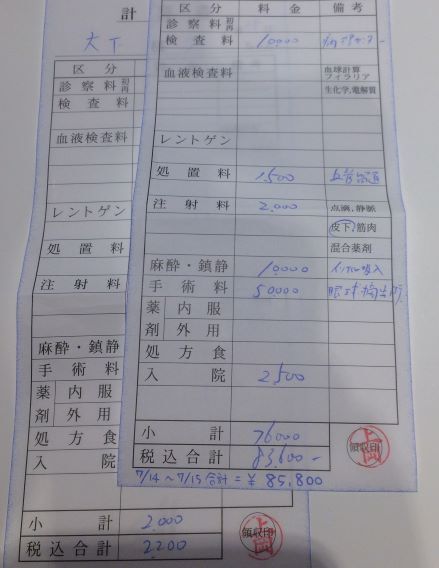 区分 料金 備考
診察料 初 再
検査料 10,000
血液検査料 血球計算
フィラリア
生化学,電解質
レントゲン
処置料 1,500
注射料 2,000 点滴,静脈
皮下,筋肉
混合薬剤
麻酔・鎮静 10,000 吸入
手術料 50,000 眼球摘出術
薬剤 内服
外用
処方食
入院 2,500
小計 76000
税込合計 83,600-
領収印
7/14〜7/15 合計=¥85,800
計
区分
診察料 初 再
検査料
血液検査料
レントゲン
処置料
注射料
麻酔・鎮静
手術料
薬剤 内服
外用
処方食
入院
小計 2000
税込合計 2200
領収印